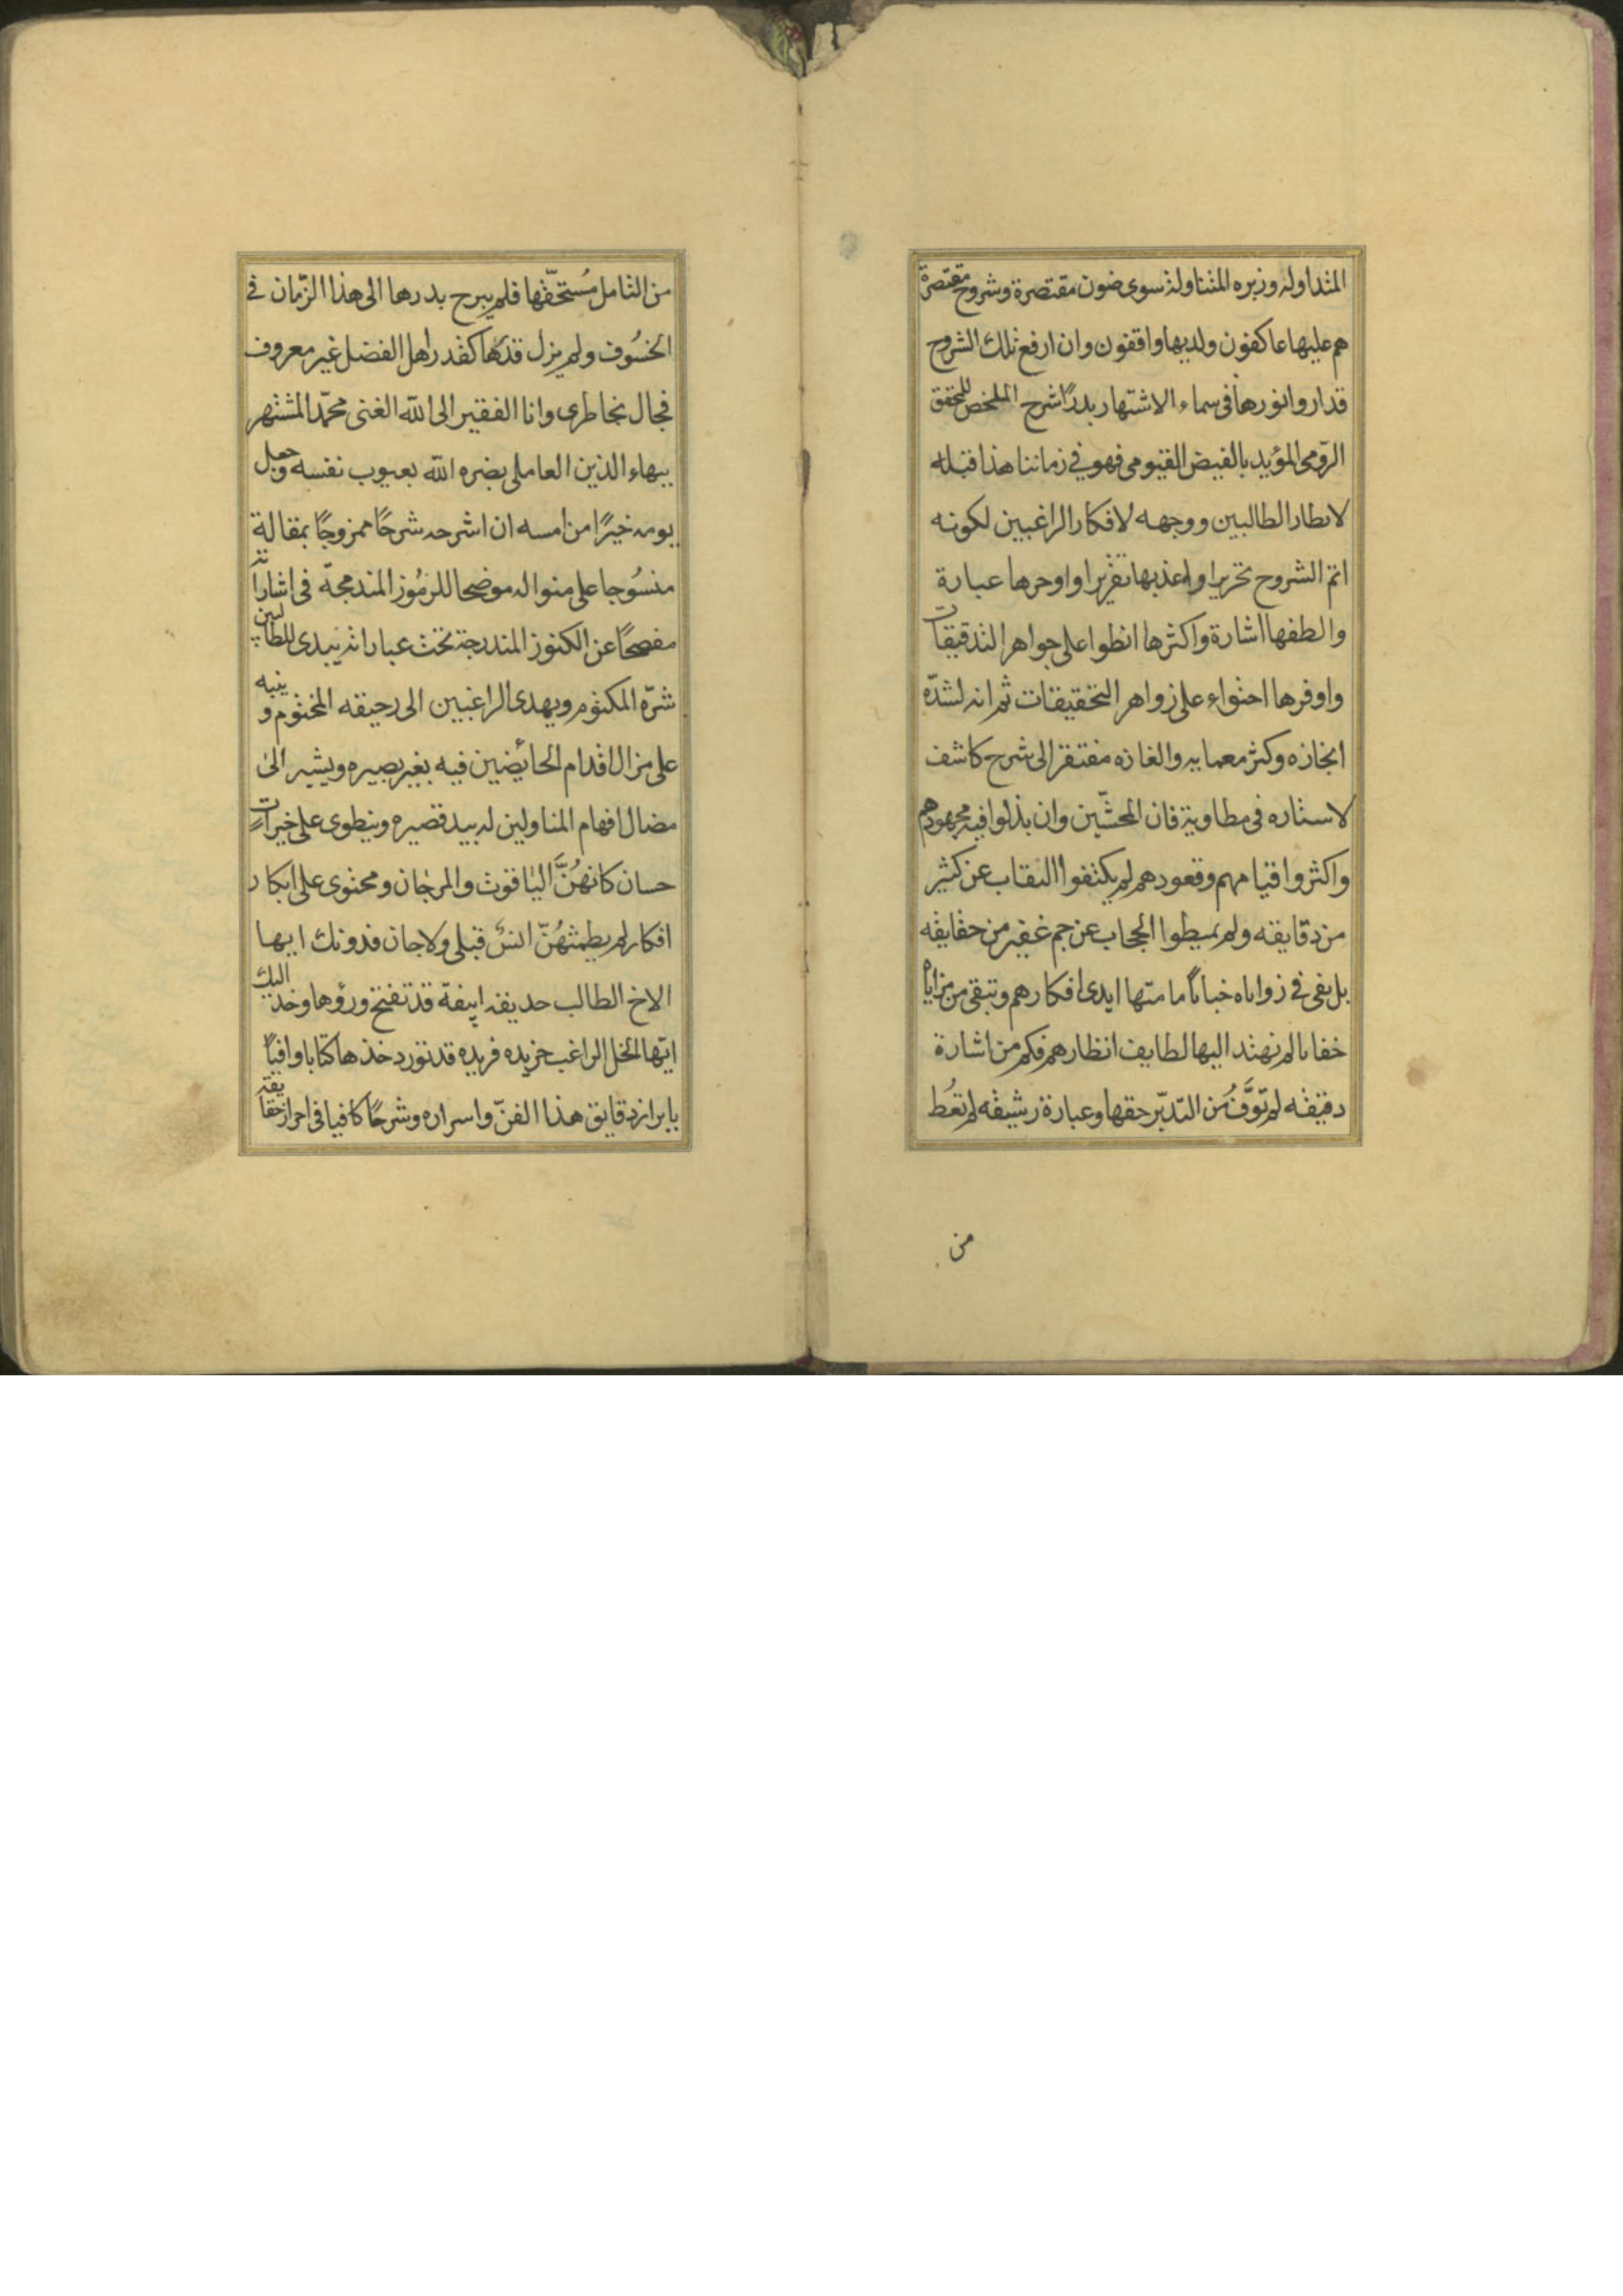 المتداوله وزبره المتناولة سوى متون مقتصرة وشروح مقتصرة
هم عليها عاكفون ولديها واقفون وان ارفع تلك الشروح
قدار وانورها فى سماء الاشتهار بدرًا شرح الملخص للمحقق
الرّومى المؤيد بالفيض القيومى فهو فى زماننا هذا قبله
لانظار الطالبين ووجهه لافكار الراغبين لكونه
اتم الشروح تحريرا واعذبها تقريرا واوجزها عبارة
والطفها اشارة واكثرها انطوا على جواهر التدقيقات
واوفرها احتواء على زواهر التحقيقات ثم انه لشدّة
ايجازه وكثر معمايه والغازه مفتقر الى شرح كاشف
لاستاره فى مطاويه فان المحشّين وان بذلوا فيه مجهودهم
واكثروا قيامهم وقعودهم لم يكشفوا النقاب عن كثير
من دقايقه ولم يميطوا الحجاب عن جم غفير من حقايقه
بل بقى فى زواياه خبايا ما مسّها ايدى افكارهم وتبقى من مزاياه
خفايا لم تهتد اليها لطايف انظارهم فكم من اشارة
دقيقه لم تُوَفَّ من التدبّر حقها وعبارة رشيقه لم تعُط
من
من التامل مُستحقّها فلم يبرح بدرها الى هذا الزّمان فى
الخسُوف ولم يزل قدَرها كقدر اهل الفضل غير معروف
فجال بخاطرى وانا الفقير الى الله الغنى محمّد المشتهر
ببهاء الدين العاملى بصره الله بعيوب نفسه وجعل
يومه خيرًا من امسه ان اشرحه شرحًا ممزوجًا بمقالة
منسُوجا على منواله موضحا للرمُوز المندمجة فى اشاراته
مفصحًا عن الكنوز المندرجة تحت عباراته يبدى للطالبين
سّره المكتوم ويهدى الراغبين الى رحيقه المختوم وينبه
على مزال اقدام الخايضين فيه بغير بصيره ويشير الى
مضال افهام المتناولين له بيد قصيره وينطوى على خيرات
حسان كانهُنَّ الياقوت والمرجان ومحتوى على ابكار
افكار لم يطمثهُنّ انسٌ قبلى ولا جان فدونك ايها
الاخ الطالب حديقه انيقة قد تفتح وروُدها وخذ اليك
ايّها الخل الراغب خريده فريده قد تورد خدها كتابا وافيًا
بابراز دقايق هذا الفنّ واسراره وشرحًا كافيا فى احراز حقايقه